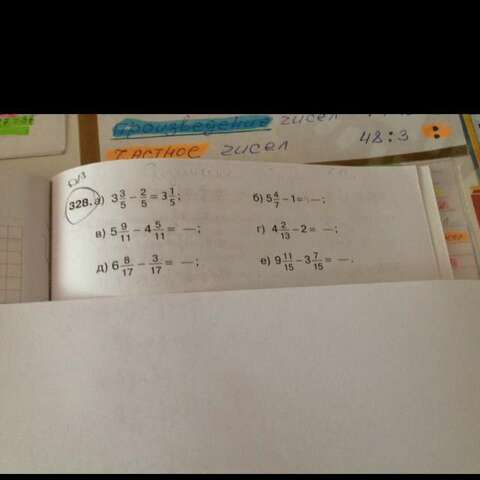 произведение чисел
частное чисел 48:3 :
D/з
328. а) 3 3/5 − 2/5 = 3 1/5; б) 5 4/7 − 1 = —;
в) 5 9/11 − 4 5/11 = —; г) 4 2/13 − 2 = —;
д) 6 8/17 − 3/17 = —; е) 9 11/15 − 3 7/15 = —.